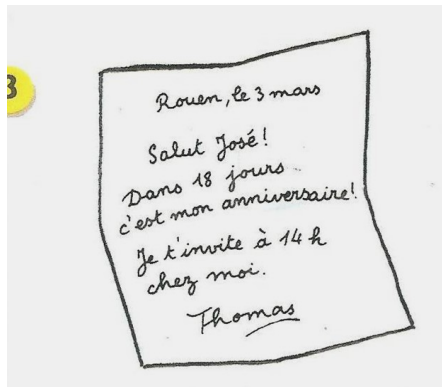 3
Rouen, le 3 mars
Salut José!
Dans 18 jours
c'est mon anniversaire!
Je t'invite à 14 h
chez moi.
Thomas